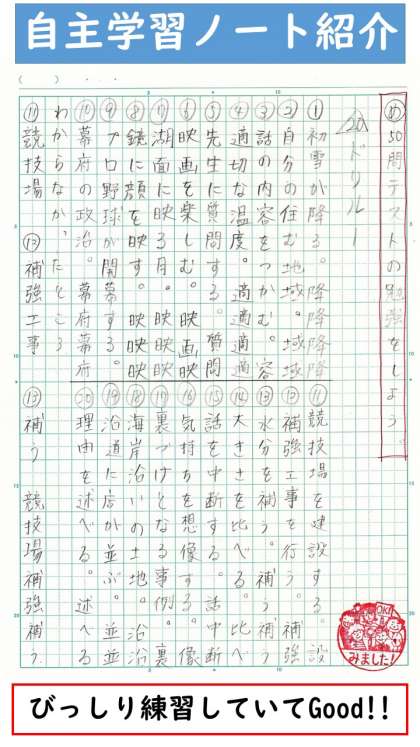 自主学習ノート紹介
( ) ・・・
め 50問テストの勉強をしよう。
20ドリル1
① 初雪が降る。降降降
② 自分の住む地域。域域
③ 話の内容をつかむ。容
④ 適切な温度。適適適適
⑤ 先生に質問する。質問
⑥ 映画を楽しむ。映画
⑦ 湖面に映る月。映映
⑧ 鏡に顔を映す。映映
⑨ プロ野球が開幕する。
⑩ 幕府の政治。幕幕府府
わからなかったところ
⑪ 競技場 ⑫ 補強工事
⑪ 競技場を建設する。設
⑫ 補強工事を行う。補強
⑬ 水分を補う。補う補う
⑭ 大きさを比べる。比べ
⑮ 話を中断する。話中断
⑯ 気持を想像する。像
⑰ 裏づけとなる事例。裏
⑱ 海岸沿いの土地。沿沿
⑲ 沿道に店が並ぶ。並並
⑳ 理由を述べる。述べる
⑬ 補う 競技場補強補う
OK!
みました!
びっしり練習していてGood!!